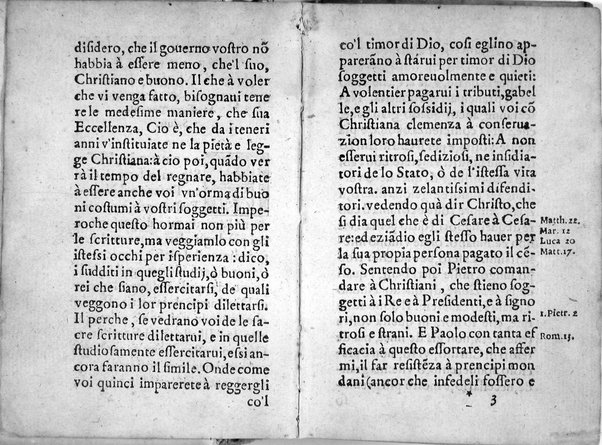 disidero, che il gouerno vostro nõ
habbia à essere meno, che'l suo,
Christiano e buono. Il che à voler
che vi venga fatto, bisognaui tene
re le medesime maniere, che sua
Eccellenza, Cio è, che da i teneri
anni v'instituiate ne la pietà e leg-
ge Christiana: à cio poi, quãdo ver
rà il tempo del regnare, habbiate
à essere anche voi vn'orma di buo
ni costumi à vostri soggetti. Impe-
roche questo hormai non più per
le scritture, ma veggiamlo con gli
istessi occhi per isperienza: dico,
i sudditi in quegli studij, ò buoni, ò
rei che siano, essercitarsi, de quali
veggono i lor prencipi dilettarsi.
Il perche, se vedranno voi de le sa-
cre scritture dilettarui, e in quelle
studiosamente essercitarui, essi an-
cora faranno il simile. Onde come
voi quinci imparerete à reggergli
co'l
co'l timor di Dio, così eglino ap-
pareranno à starui per timor di Dio
soggetti amoreuolmente e quieti:
A volentier pagarui i tributi, gabel
le, e gli altri sossidij, i quali voi cõ
Christiana clemenza à conserua-
zion loro haurete imposti: A non
esserui ritrosi, sediziosi, ne insidia-
tori de lo Stato, ò de l'istessa vita
vostra. anzi zelantissimi difendi-
tori. vedendo quà dir Christo, che
si dia quel che è di Cesare à Cesa- Matth. 22.
re: ed eziãdio egli stesso hauer per Mar. 12
la sua propia persona pagato il cẽ- Luca 20
so. Sentendo poi Pietro coman- Matt. 17.
dare à Christiani, che stieno sog-
getti à i Re e à Presidenti, e à signo
ri, non solo buoni e modesti, ma ri- 1. Pietr. 2
trosi e strani. E Paolo con tanta ef
ficacia à questo essortare, che affer Rom. 13.
mi, il far resistẽza à prencipi mon
dani (ancor che infedeli fossero e
* 3